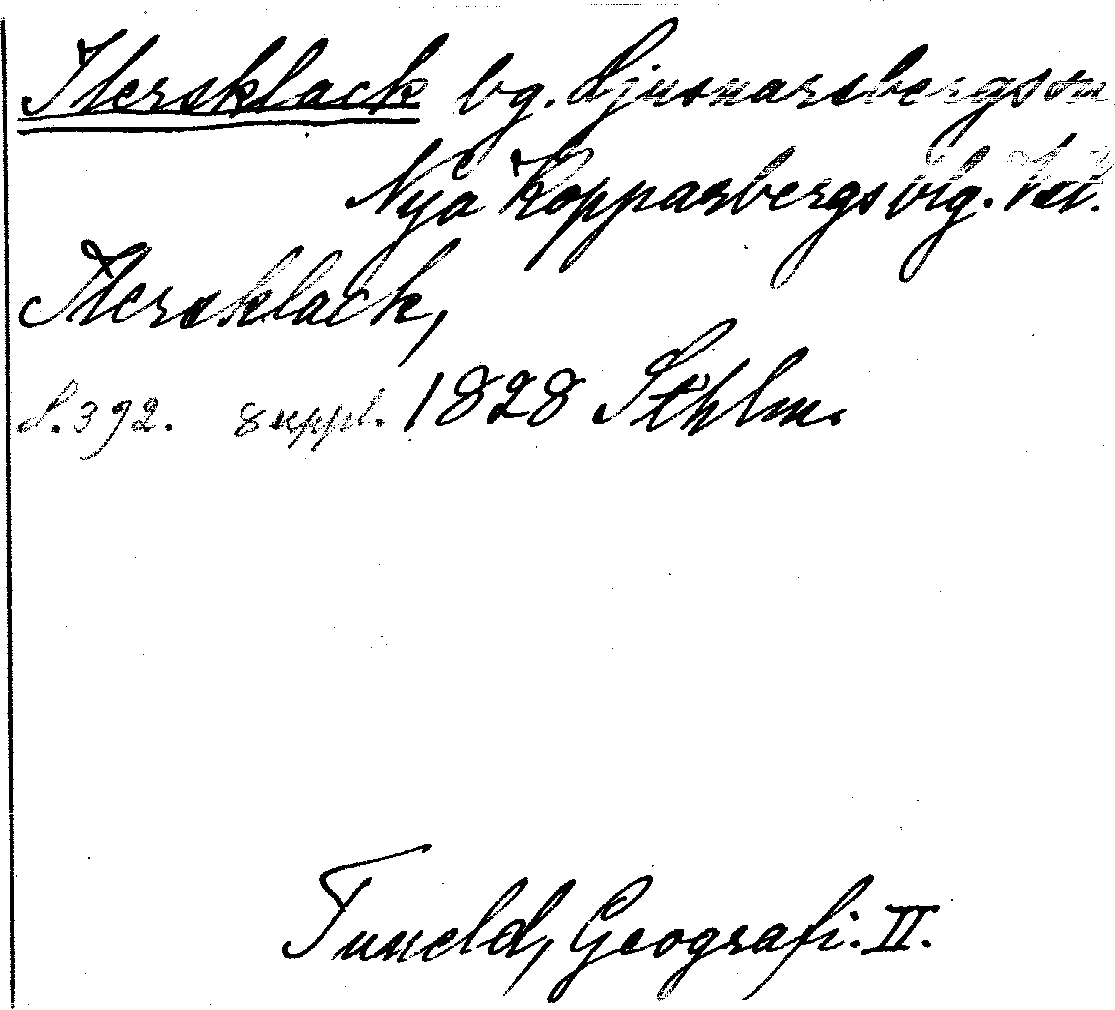 Hersklack bg. Ljusnarsbergs sn
Nya Kopparbergs blg.
Hersklack,
s. 392. suppl. 1828 Sthlm.
Tuneld, Geografi. II.